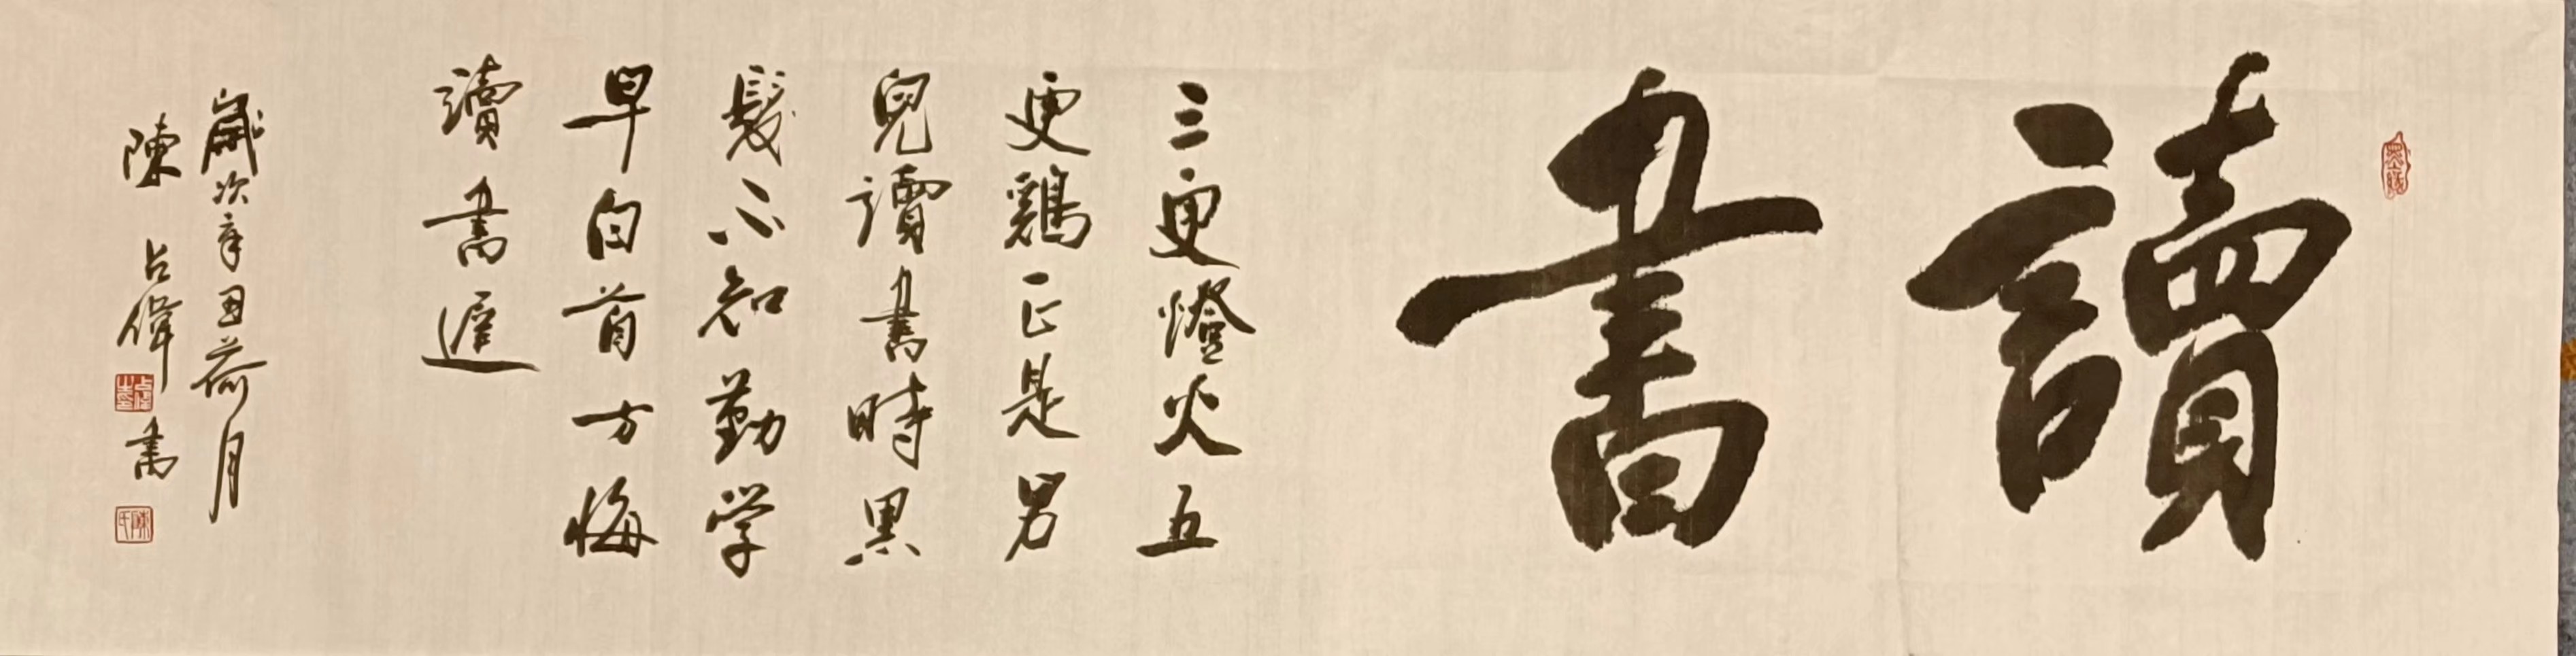 讀書
三更燈火五
更鷄正是男
兒讀書時黑
髮不知勤学
早白首方悔
讀書遲
歲次辛丑荷月
陳占偉書
陳氏